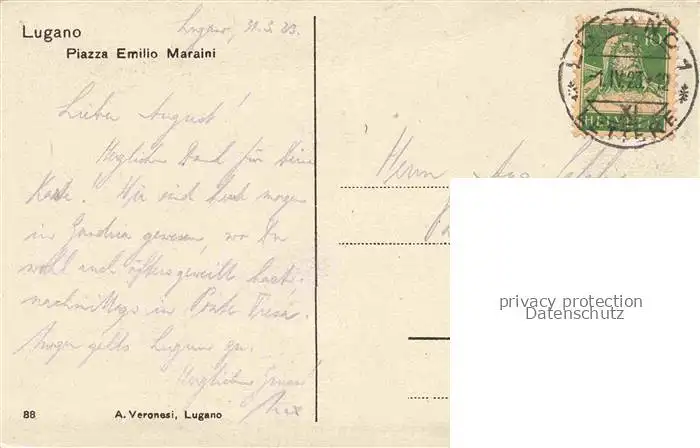 Lugano
Piazza Emilio Maraini
Lugano, 31.3.23.
Lieber August!
Herzlichen Dank für Deine
Karte! Wir sind heut morgen
in Gandria gewesen, wo Du
wohl auch öfters geweilt hast.
nachmittags in Ponte Tresa.
Morgen gehts Lugano zu.
Herzlichen Gruss!
Herrn Aug.
LUGANO 1
1.IV.23.
XI
LETTERE
10
HELVETIA
privacy protection
Datenschutz
88
A. Veronesi, Lugano